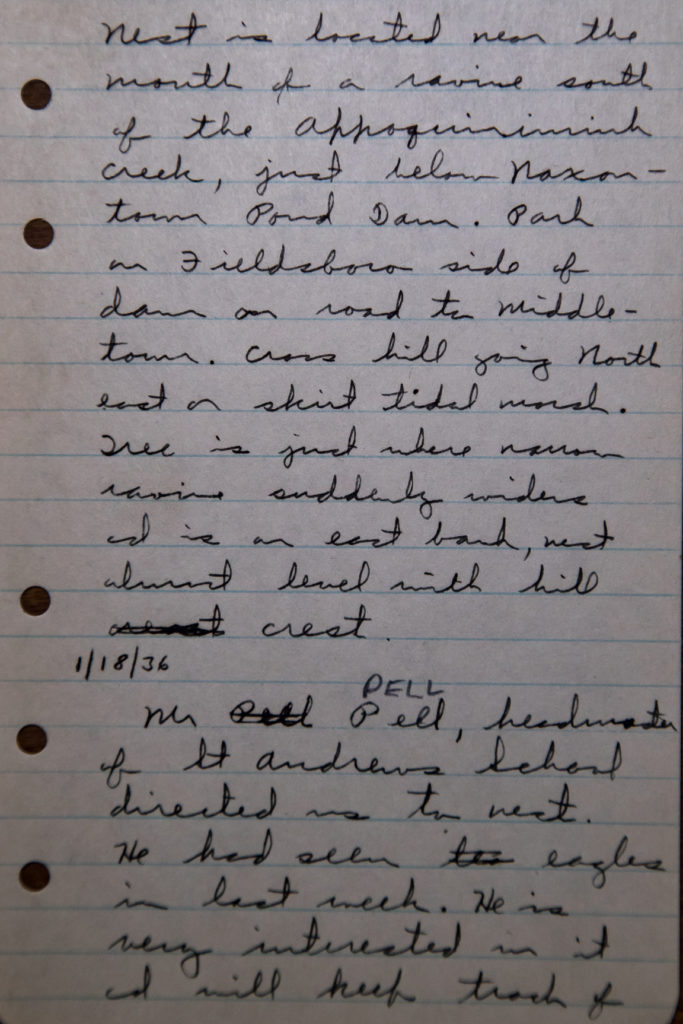 Nest is located near the
mouth of a ravine south
of the Appoquiniminh
Creek, just below Noxon-
town Pond Dam. Park
on Fieldsboro side of
dam on road to Middle-
town. Cross hill going North
east or skirt tidal marsh.
Tree is just where narrow
ravine suddenly widens
ad is on east bank, nest
almost level with hill
crest.
1/18/36
PELL
Mr Pell Pell, headmaster
of St Andrews School
directed us to nest.
He had seen two eagles
in last week. He is
very interested in it
ad will keep track of